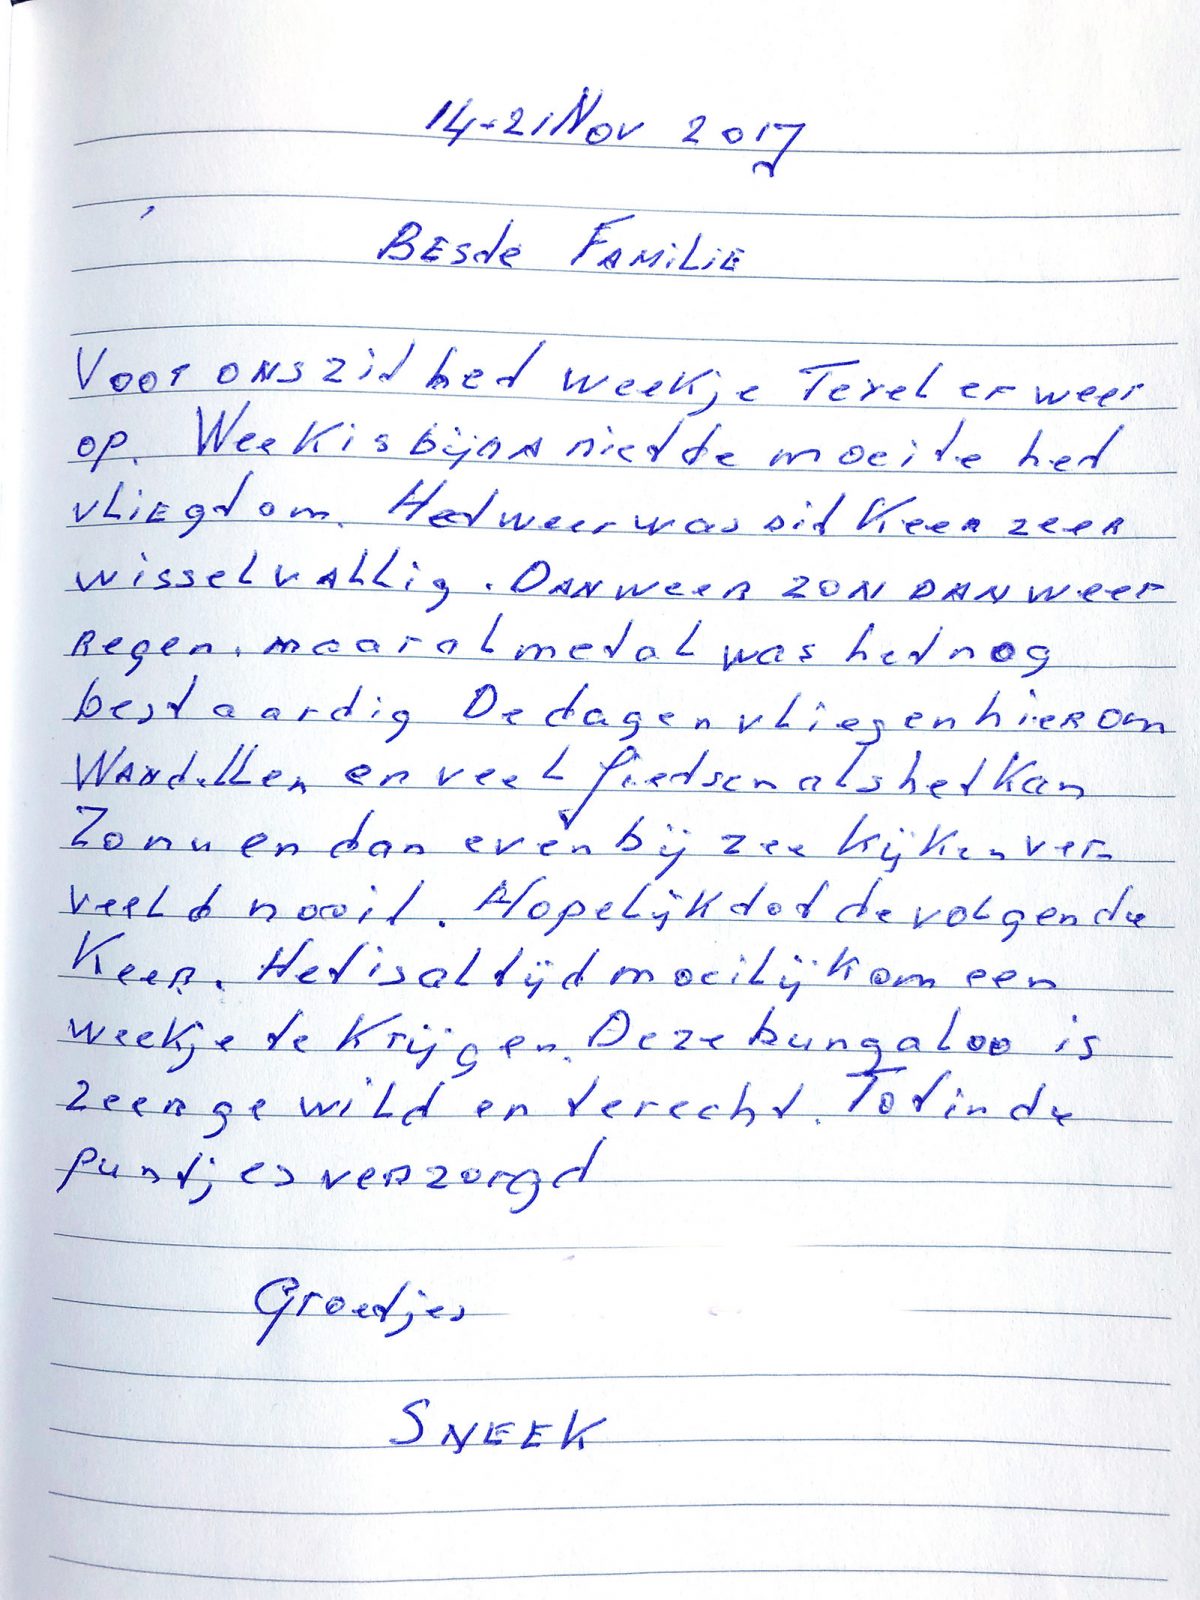 14-21 Nov 2017
Beste Familie
Voor ons zit het weekje Texel er weer
op. Week is bijna niet de moeite het
vliegt om. Het weer was dit keer zeer
wisselvallig. Dan weer zon dan weer
regen. maar al met al was het nog
bestaardig De dagen vliegen hier om
Wandellen en veel fietsen als het kan
Zo nu en dan even bij zee kijken ver-
veeld nooit. Hopelijk tot de volgende
Keer. Het is altijd moeilijk om een
weekje te krijgen. Deze bungaloo is
zeer gewild en terecht. Tot in de
puntjes verzorgd
Groetjes
SNEEK